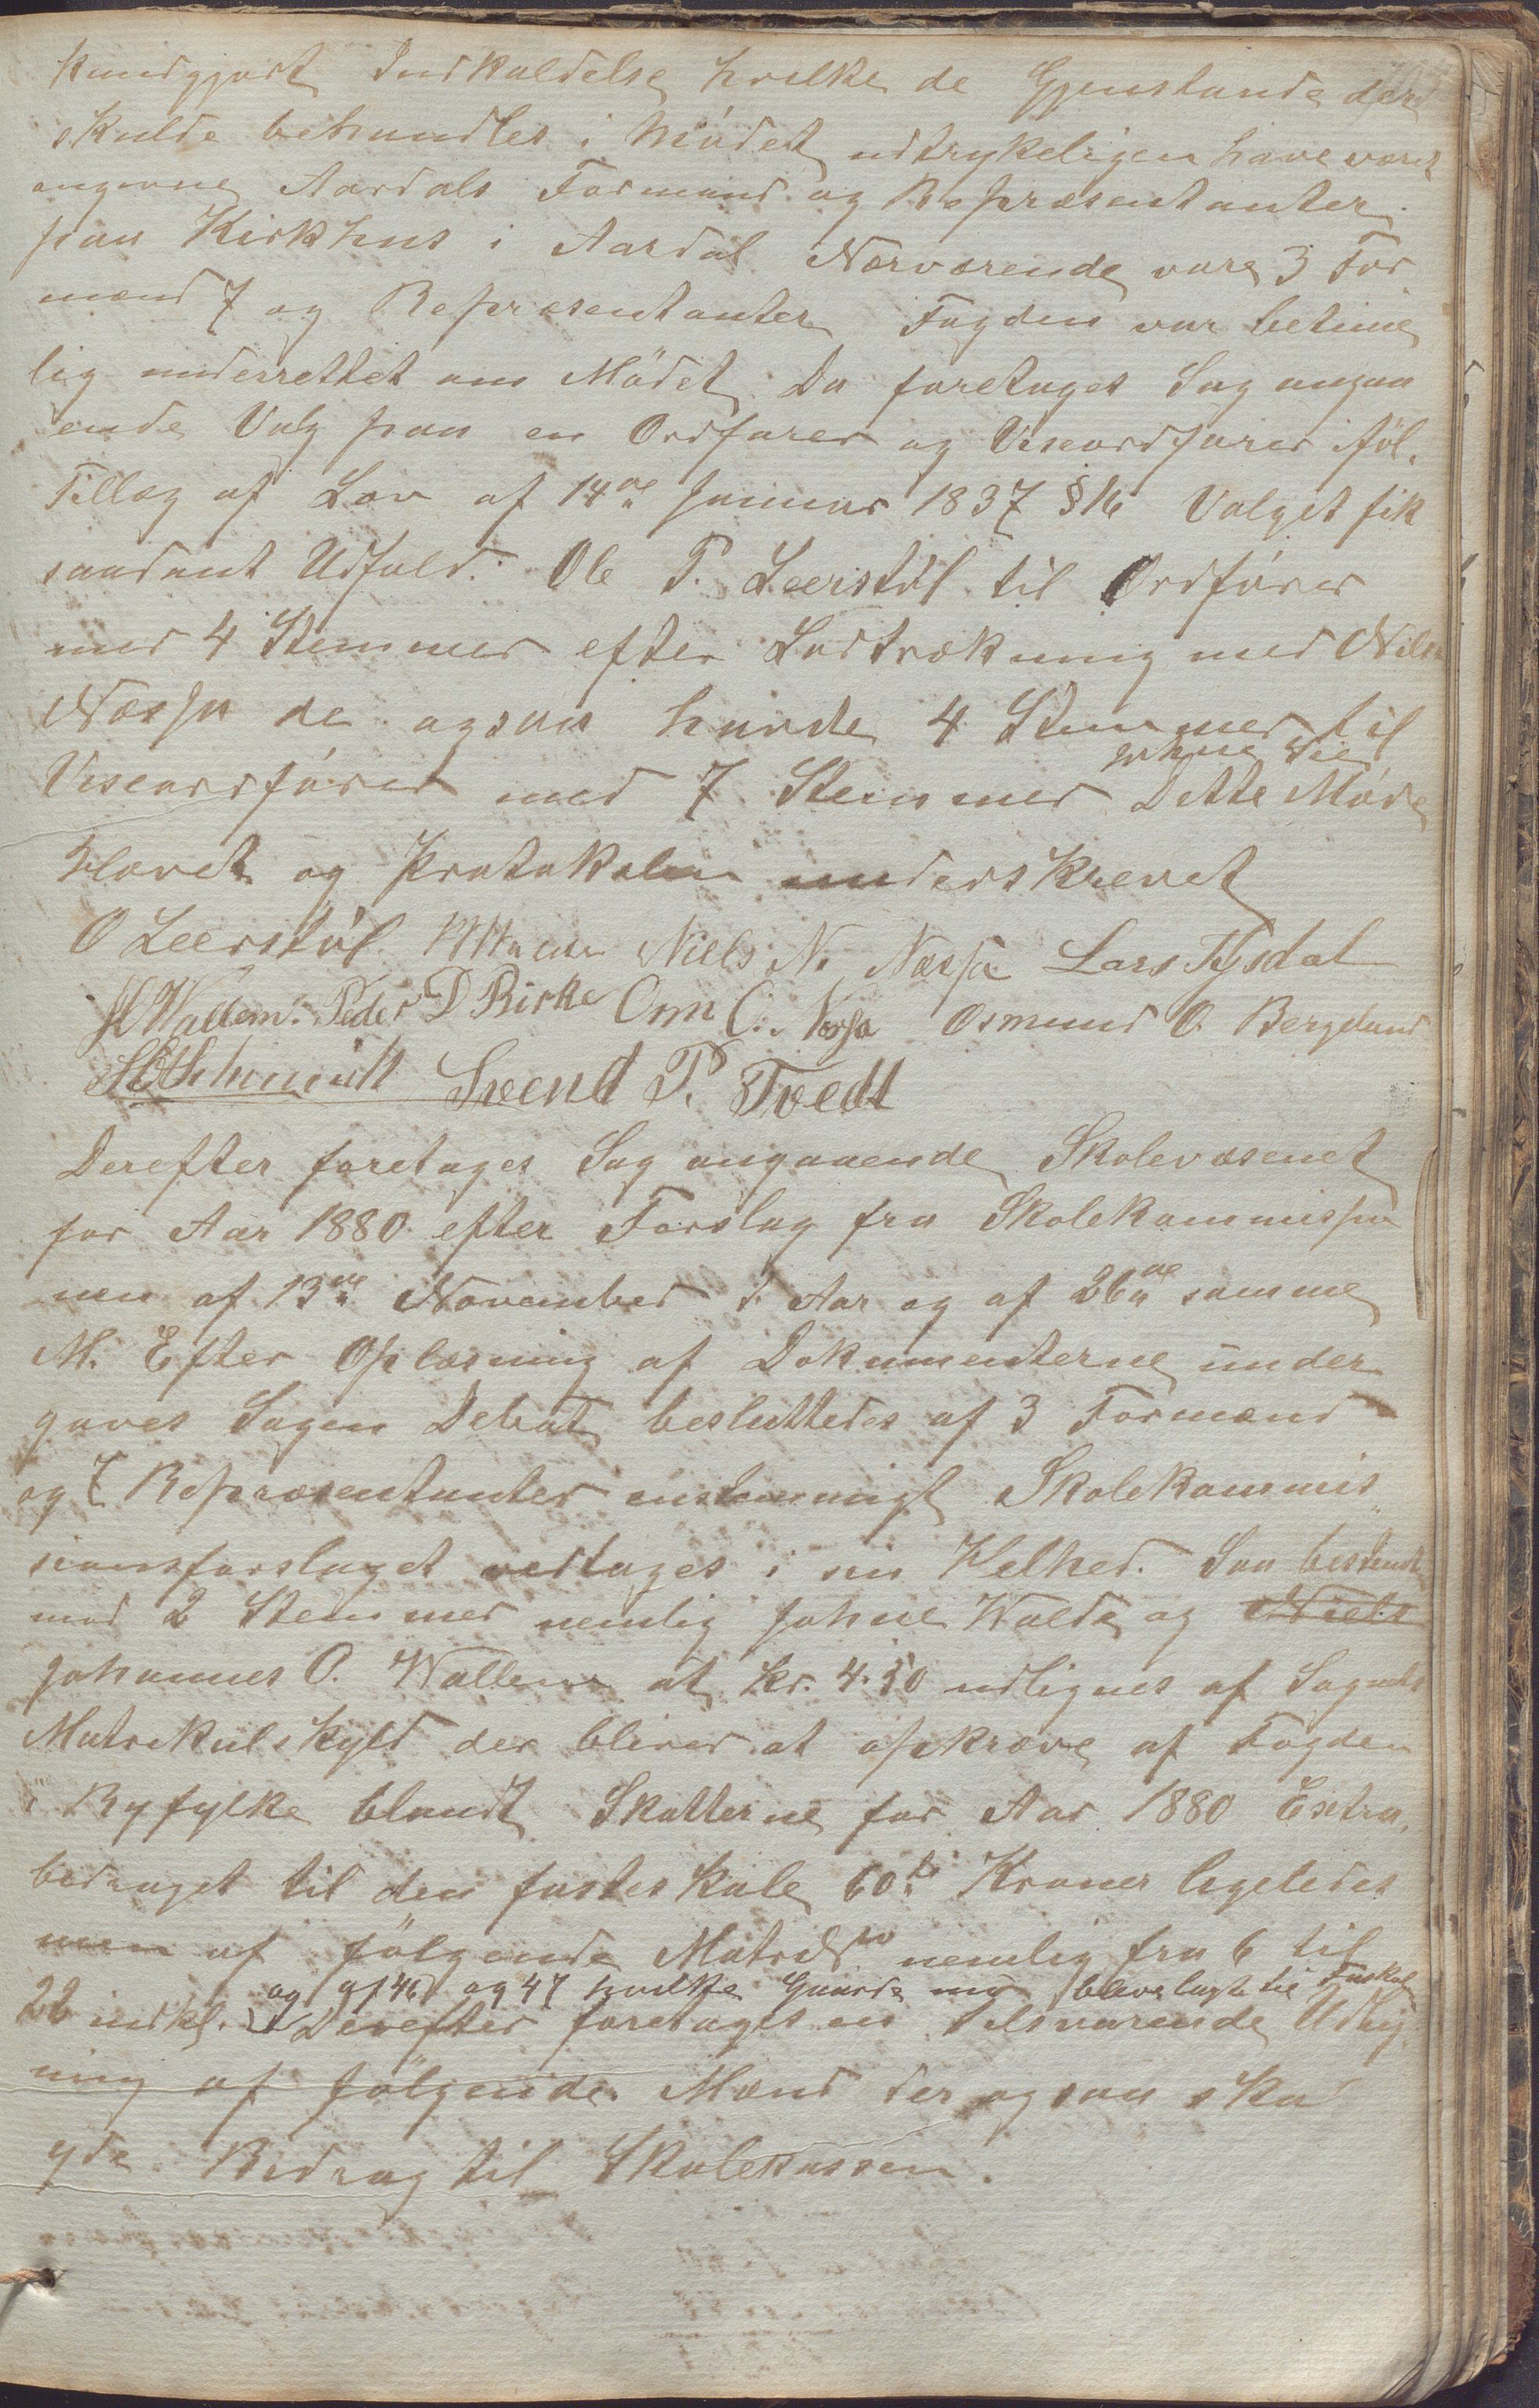 kundgjort Indkaldelse hvilke de Gjenstande der
skulde behandles i Mødet udtrykeligen have været
angivne Aardals Formænd og Repræsentanter
paa Kirkhus i Aardal Nærværende vare 3 For
mænd 7 og Repræsentanter Fogden var betime
lig underrettet om Mødet. Da foretages Sag angaa
ende Valg paa en Ordfører og Viseordfører iføl.
Tillæg af Lov af 14de Januar 1837 § 16 Valget fik
saadant Udfald. Ole P. Leerstøl til Ordfører
med 4 Stemmer efter Lodtrækning med Nils
Næssa de ogsaa havde 4 Stemmer til
Viseordfører med 7 Stemmer Dette Møde
Hævet og Protokolen underskrevet
O Leerstøl Niels N. Næssa Lars Tysdal
Wallem. Peder D Birke Omn C. Næssa Osmund O. Bergeland
Schmidt Svend P. Tvedt
Derefter foretages Sag angaaende Skolevæsenet
for Aar 1880 efter Forslag fra Skolekommissio
nen af 13de November d Aar og af 26de samme
M. Efter Oplæsning af Dokumenterne under
gaves Sagen Debat besluttedes af 3 Formænd
og 7 Repræsentanter enstemmigt Skolekommis
sionsforslaget vedtages i sin Helhed. Saa bestemtes
mod 2 Stemmer nemlig Johne Valde og Niels
Johannes O. Wallem at kr. 4.50 udlignes af Sognets
Matrikulskyld der bliver at opkræve af Fogden
i Ryfylke blandt Skatterne for Aar 1880 Extra
bedraget til den fasteskole 60ti Kroner ligeledes
men af følgende Matr No nemlig fra 6 til
og af 46 og 47 hvilke Gaarde blive lagt til Faskol
22 indkl. Derefter foretages en tilsvarende Udlig
ning af følgende Mænd der ogsaa skal
yde Bidrag til Skolekassen.